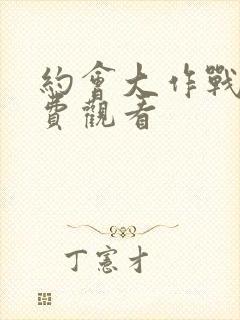 約會大作戰
費觀看
丁憲才